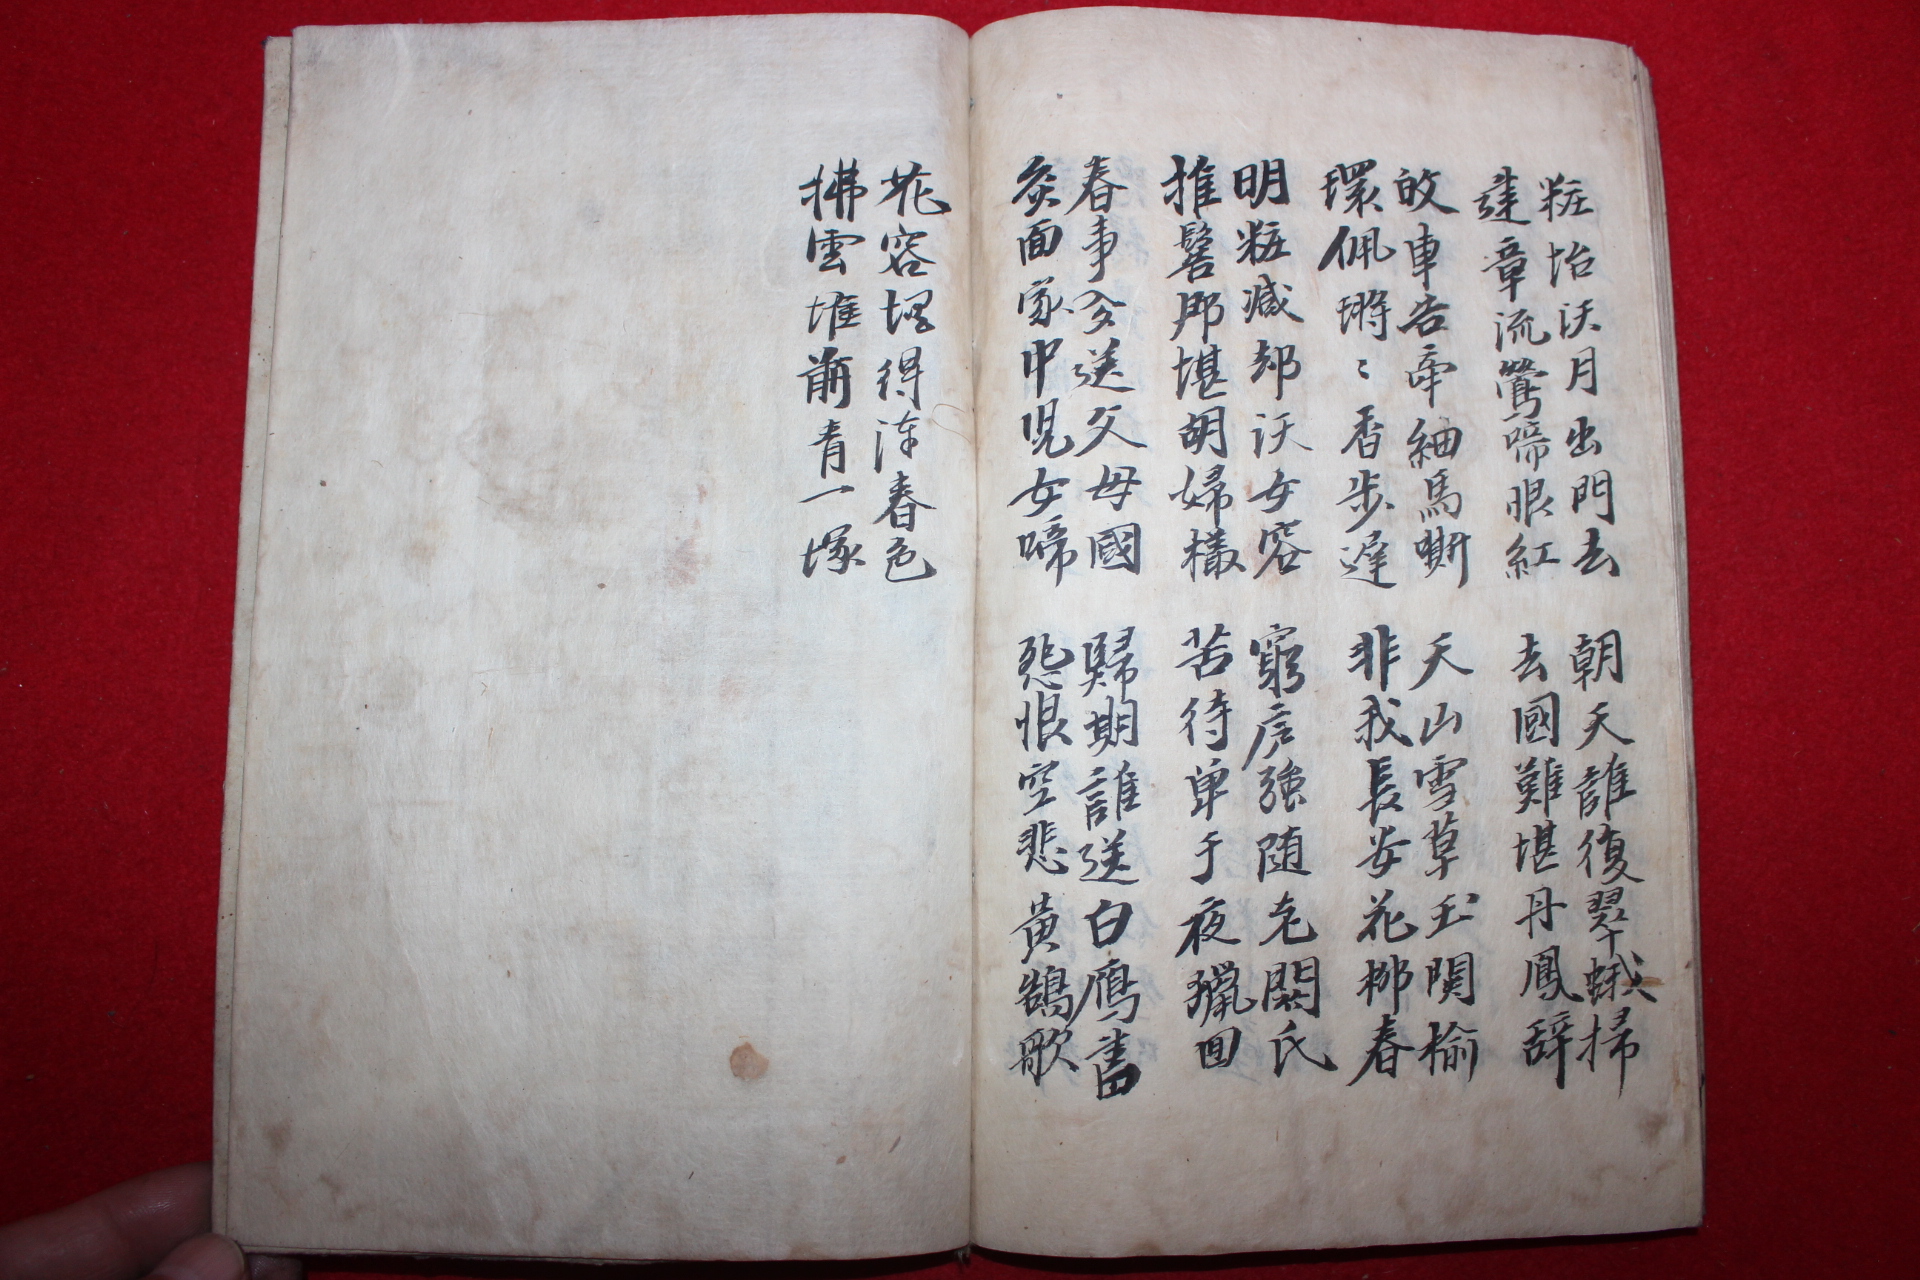 粧怡沃月出門去
蓬章流鶯啼眼紅
朝天誰復翠蛾掃
去國難堪丹鳳辭
皎車告帝細馬嘶
環佩瑲〻香步遲
天山雪草玉関楡
非我長安花柳春
明粧減却沃女容
推髻那堪胡婦樣
窮庐強随老閼氏
苦待单于夜獵回
春事今送父母國
面家中児女啼
歸期誰送白鴈書
怨恨空悲黄鵠歌
花容埋得漢春色
拂雲堆前青一塚